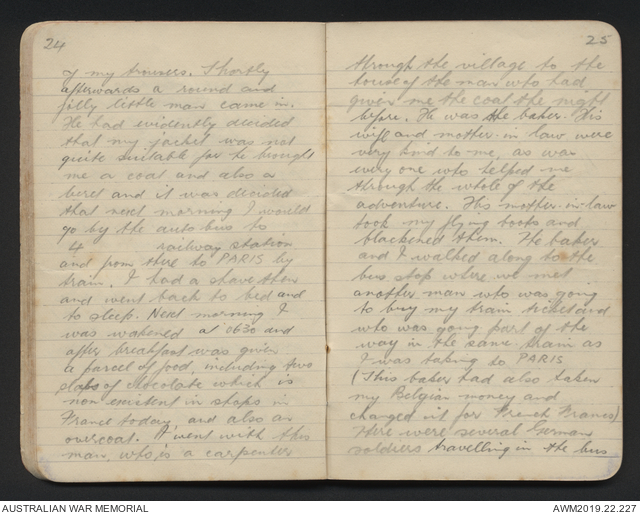 24
of my trousers. Shortly
afterwards a round and
jolly little man came in.
He had evidently decided
that my jacket was not
quite suitable for he brought
me a coat and also a
beret and it was decided
that next morning I would
go by the auto bus to
4 railway station
and from there to PARIS by
train. I had a shave then
and went back to bed and
to sleep. Next morning I
was wakened at 0630 and
after breakfast was given
a parcel of food, including two
slabs of chocolate which is
non existent in shops in
France today, and also an
overcoat. I went with this
man, who is a carpenter
25
through the village to the
house of the man who had
given me the coat the night
before. He was the baker. His
wife and mother-in-law were
very kind to me, as was
every one who helped me
through the whole of the
adventure. His mother-in-law
took my flying boots and
blackened them. The baker
and I walked along to the
bus stop where we met
another man who was going
to buy my train ticket and
who was going part of the
way in the same train as
I was taking to PARIS
(This baker had also taken
my Belgian money and
changed it for French Francs)
There were several German
soldiers travelling in the bus
AUSTRALIAN WAR MEMORIAL
AWM2019.22.227